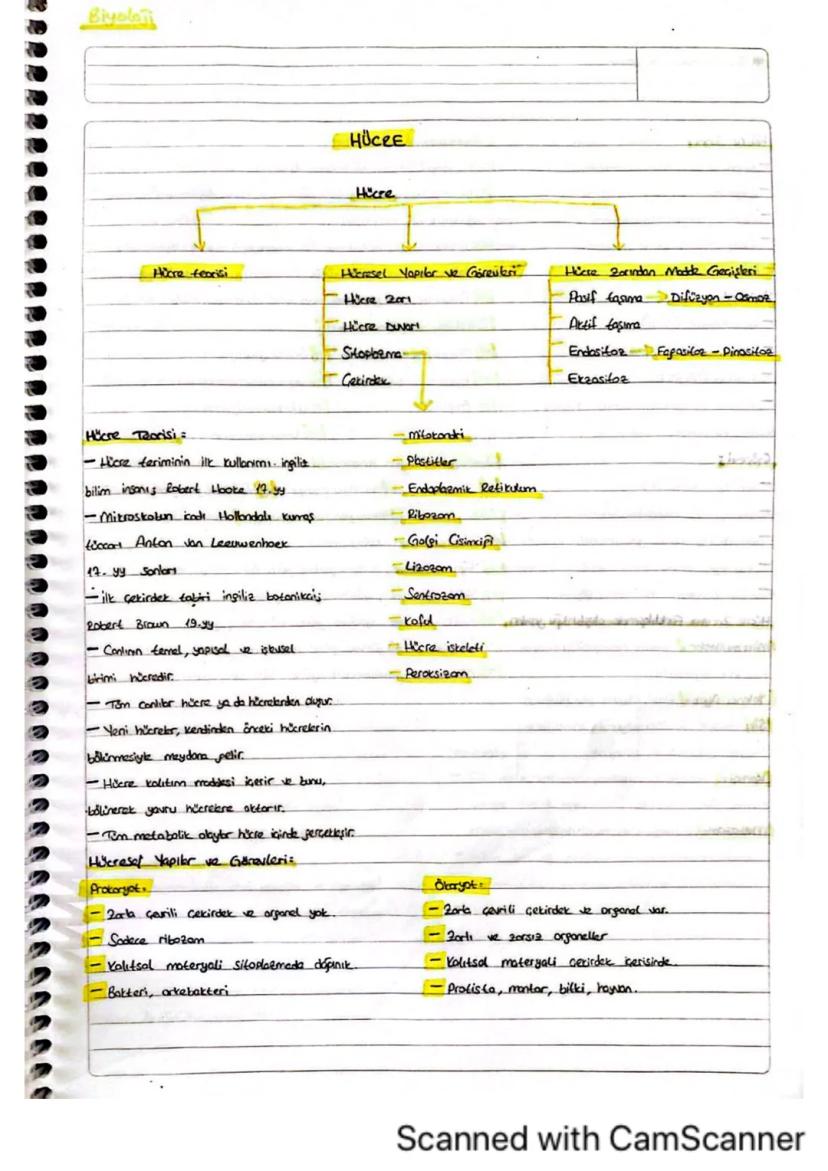 Biyoloji
HÜCRE
Hücre
Hücre teorisi
Hücresel Yapılar ve Görevleri
Hücre Zarından Madde Geçişleri
Hücre Zarı
Hücre Duvarı
Sitoplazma
Çekirdek
Pasif taşıma → Difüzyon - Osmoz
Aktif taşıma
Endositoz → Fagositoz - Pinositoz
Ekzositoz
Hücre Teorisi:
- Hücre teriminin ilk kullanımı. ingiliz
bilim insanı; Robert Hooke 17.yy
- Mikroskobun icadı Hollandalı kumaş
tüccarı Anton van Leeuwenhoek
17. yy sonları
- ilk çekirdek tabiri ingiliz botanikçi;
Robert Brown 19.yy
- Canlının temel, yapısal ve işlevsel
birimi hücredir.
- Tüm canlılar hücre ya da hücrelerden oluşur.
- Yeni hücreler, kendinden önceki hücrelerin
bölünmesiyle meydana gelir.
- Hücre kalıtım maddesi içerir ve bunu,
bölünerek yavru hücrelere aktarır.
- Tüm metabolik olaylar hücre içinde gerçekleşir.
- Mitokondri
- Plastitler
- Endoplazmik Retikulum
- Ribozom
- Golgi Cisimciği
- Lizozom
- Sentrozom
- Koful
- Hücre iskeleti
- Peroksizom
Hücresel Yapılar ve Görevleri:
Prokaryot:
- Zarla çevrili çekirdek ve organel yok.
- Sadece ribozom
- Kalıtsal materyali sitoplazmada dağınık.
- Bakteri, arkebakteri
Ökaryot:
- Zarla çevrili çekirdek ve organel var.
- Zarlı ve zarsız organeller
- Kalıtsal materyali çekirdek içerisinde.
- Protista, mantar, bitki, hayvan.
Scanned with CamScanner